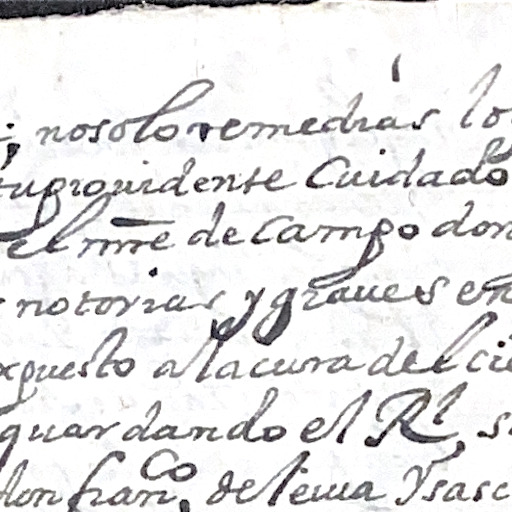 nosolo remedias lo
tu providente Cuidado
el mre de Campo don
notorias y graues en
xpuesto a la cura del cie
guardando el Rl s
don franco. de leiua Ysasc